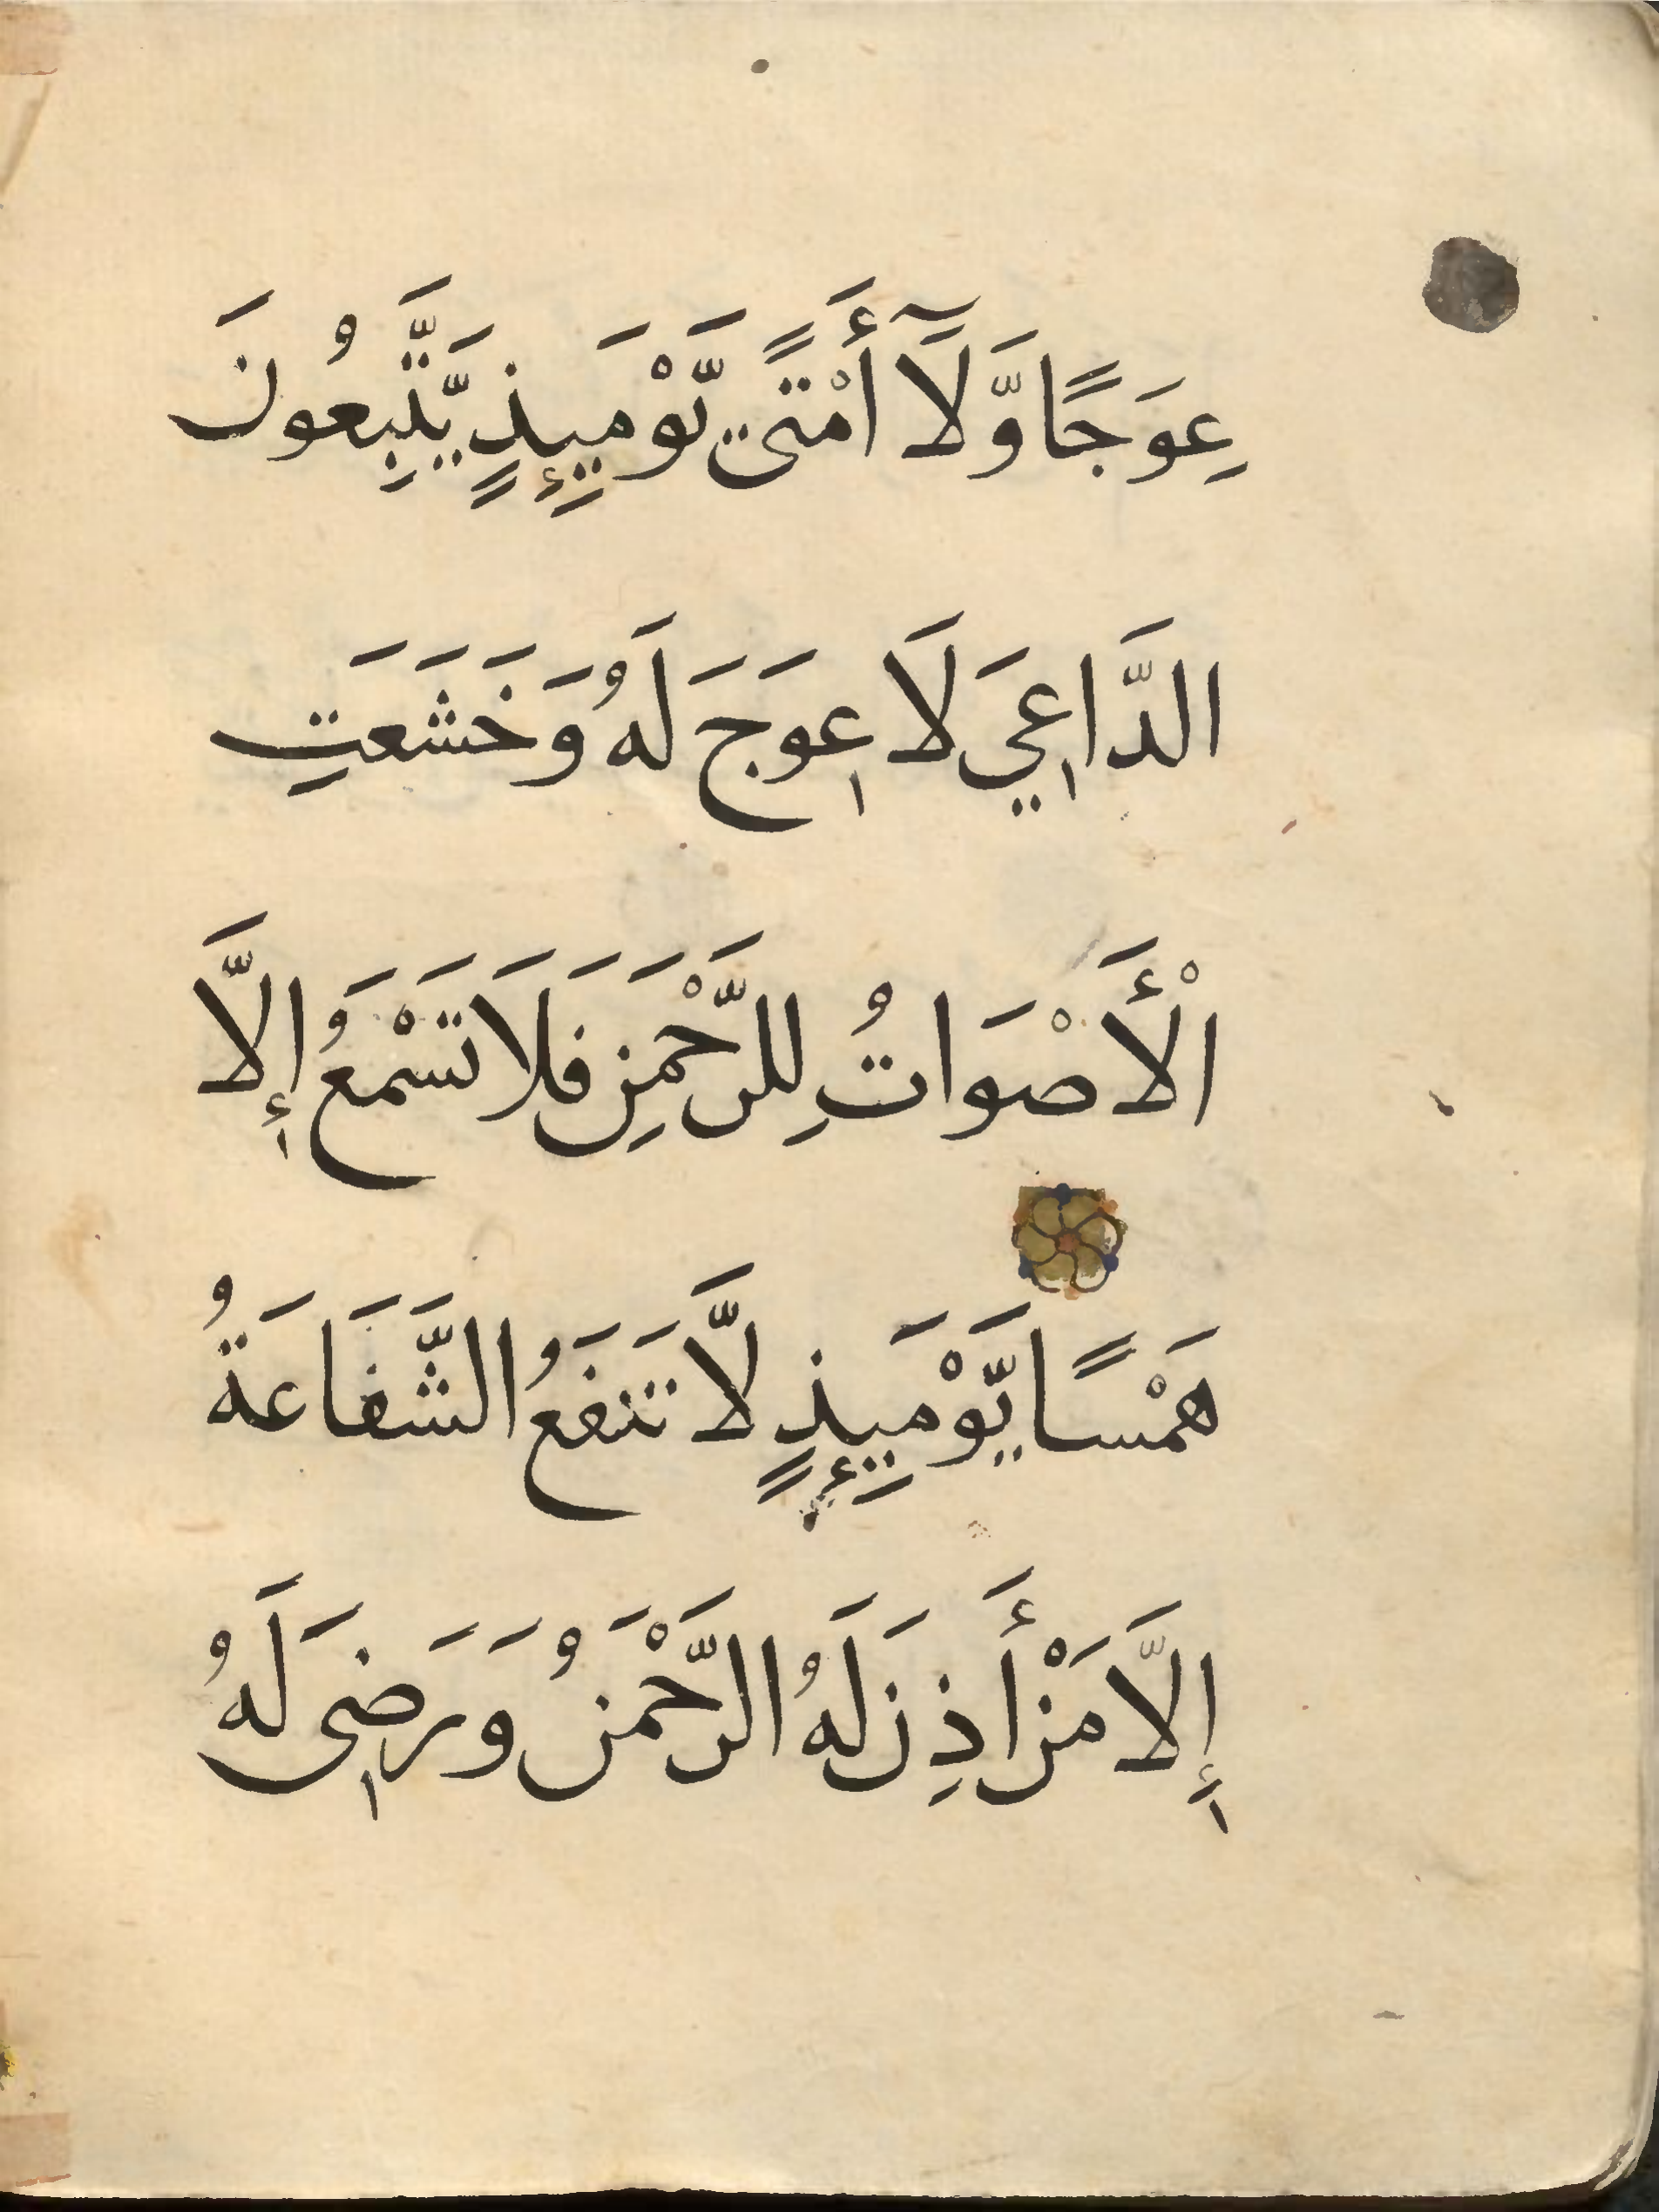 عِوَجًا وَّلَآ أَمْتًى يَّوْمَيِٕذٍ يَّتَّبِعُونَ
الدَّاعِيَ لَا عِوَجَ لَهُ وَخَشَعَتِ
الْأَصْوَاتُ لِلرَّحْمَنِ فَلَا تَسْمَعُ إِلَّا
هَمْسًا يَّوْمَيِٕذٍ لَّا تَنفَعُ الشَّفَاعَةُ
إِلَّا مَنْ أَذِنَ لَهُ الرَّحْمَنُ وَرَضِىَ لَهُ